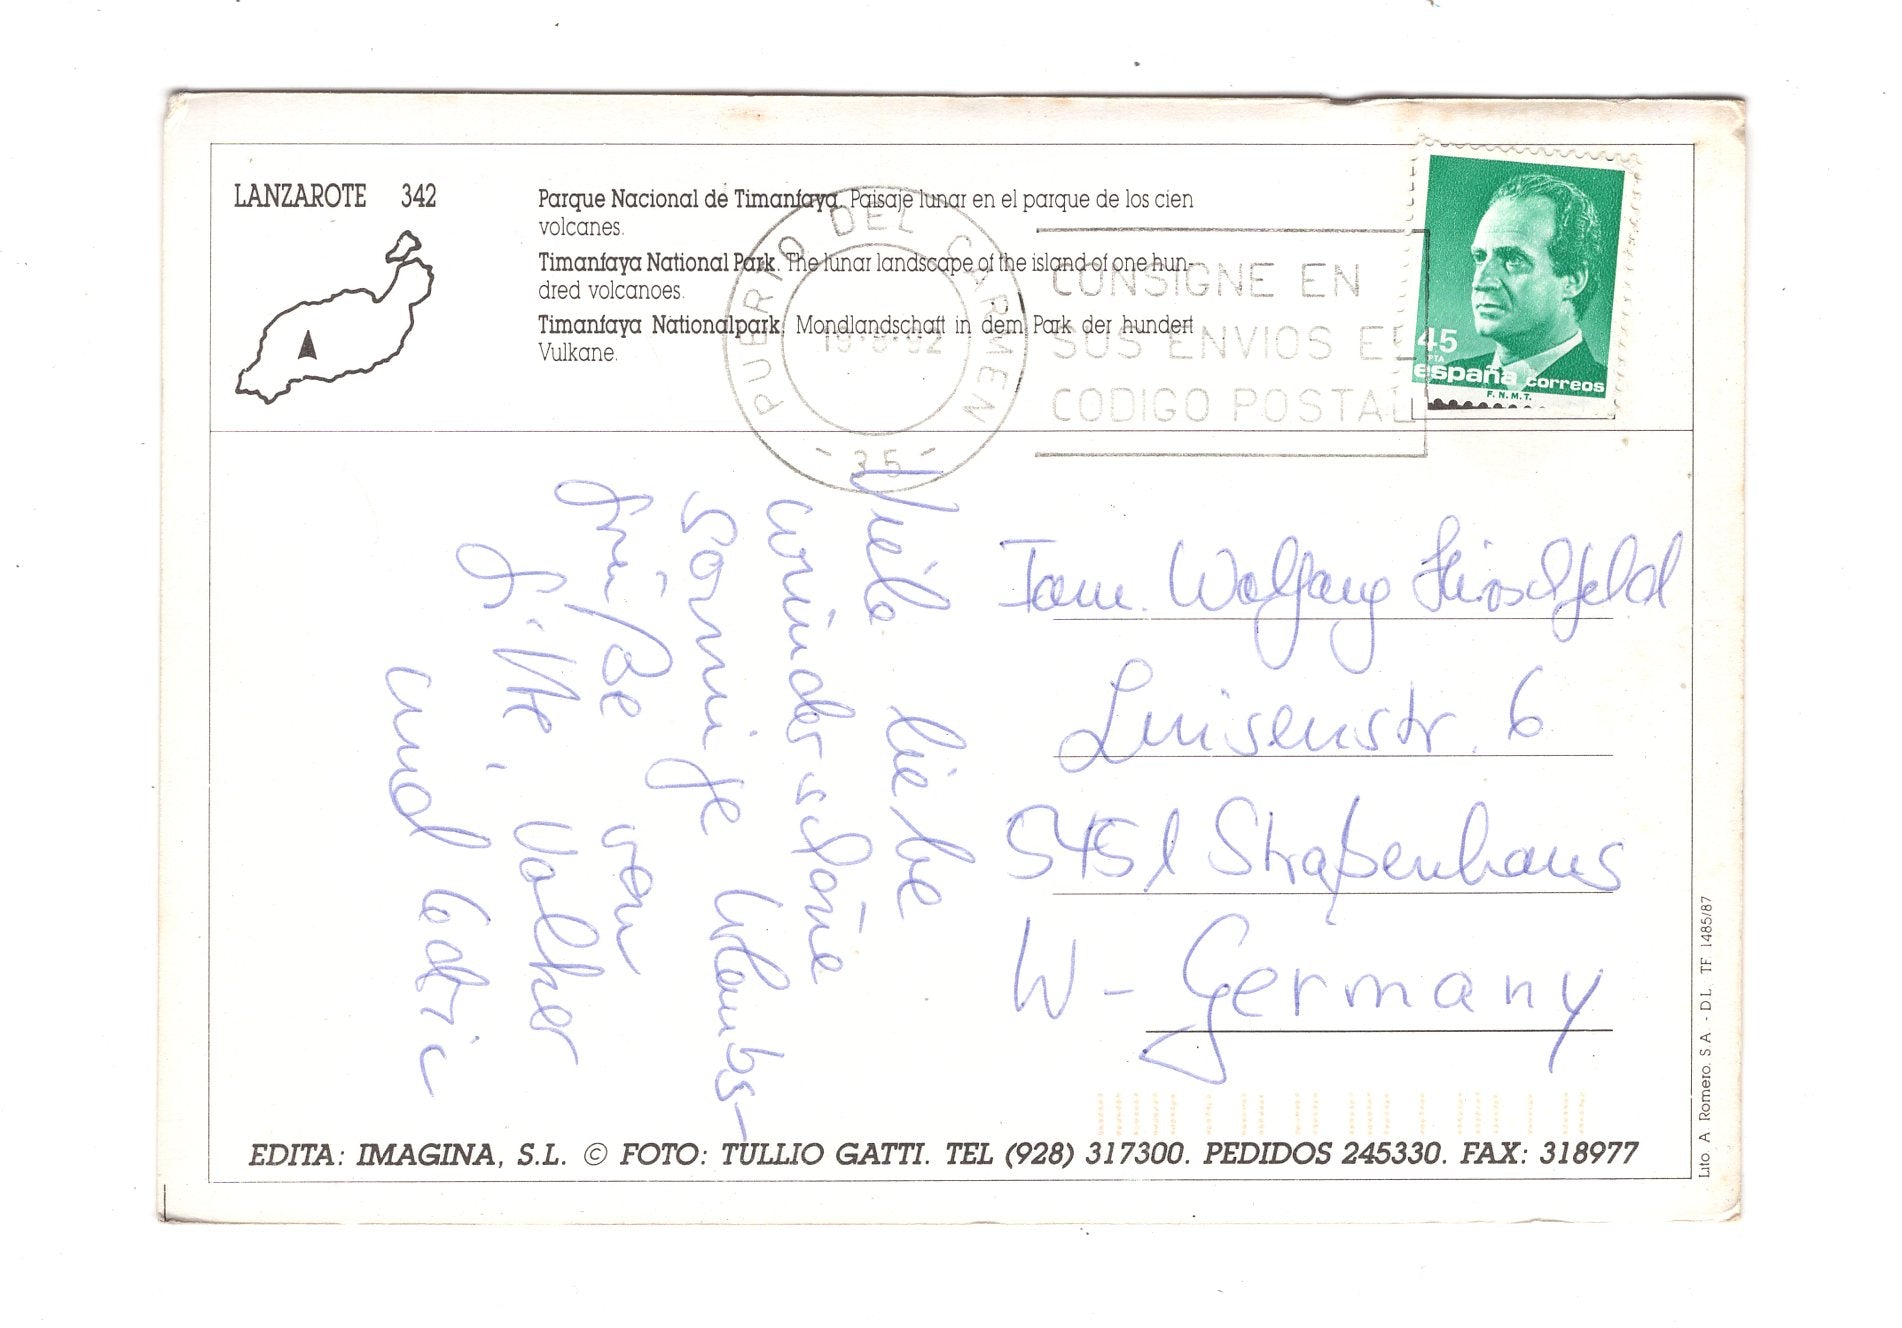 LANZAROTE 342
Parque Nacional de Timanfaya. Paisaje lunar en el parque de los cien
volcanes.
Timanfaya National Park. The lunar landscape of the island of one hun-
dred volcanoes.
Timanfaya Nationalpark. Mondlandschaft in dem Park der hundert
Vulkane.
PUERTO DEL CARMEN
- 35 -
CONSIGNE EN
SUS ENVIOS EL
CODIGO POSTAL
45
PTA
españa correos
F.N.M.T.
Viele liebe
wunderschöne
sonnige Urlaubs-
grüße von
Gitte, Volker
und
Fam. Wolfgang Hirschfeld
Luisenstr. 6
5451 Straßenhaus
W-Germany
EDITA: IMAGINA, S.L. © FOTO: TULLIO GATTI. TEL (928) 317300. PEDIDOS 245330. FAX: 318977
Lito. A Romero. S.A - D.L. TF 1485/87